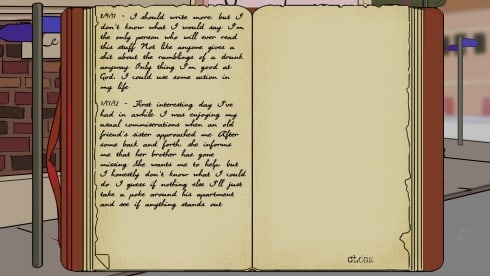 3/9/12 - I should write more, but I
don't know what I would say. I'm
the only person who will ever read
this stuff. Not like anyone gives a
shit about the ramblings of a drunk
anyway. Only thing I'm good at.
God, I could use some action in
my life.
3/17/12 - First interesting day I've
had in awhile. I was enjoying my
usual commiserations when an old
friend's sister approached me. After
some back and forth, she informs
me that her brother has gone
missing. She wants me to help, but
I honestly don't know what I could
do. I guess if nothing else I'll just
take a poke around his apartment
and see if anything stands out.
CLOSE